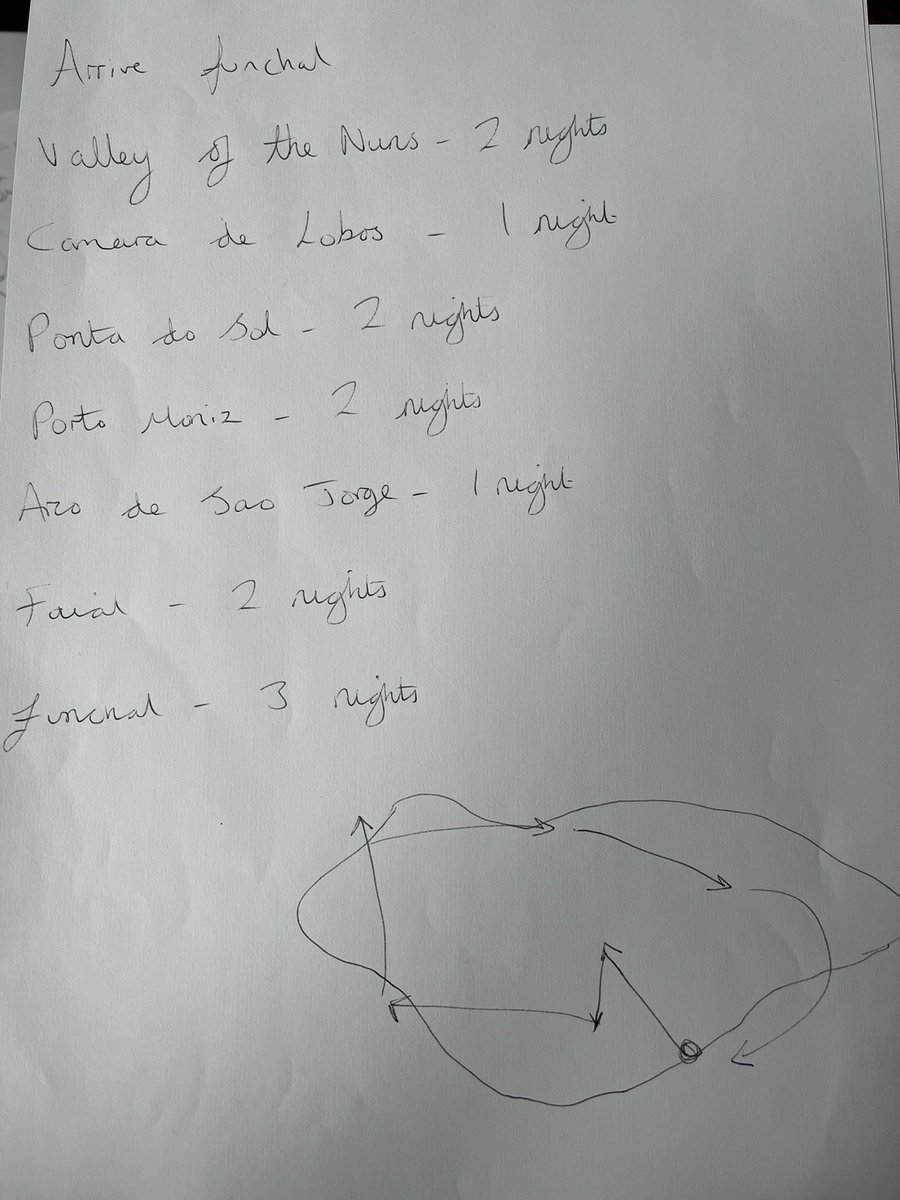 Arrive funchal
Valley of the Nuns - 2 nights
Camara de Lobos - 1 night
Ponta do Sol - 2 nights
Porto Moniz - 2 nights
Arco de Sao Jorge - 1 night
Faial - 2 nights
funchal - 3 nights